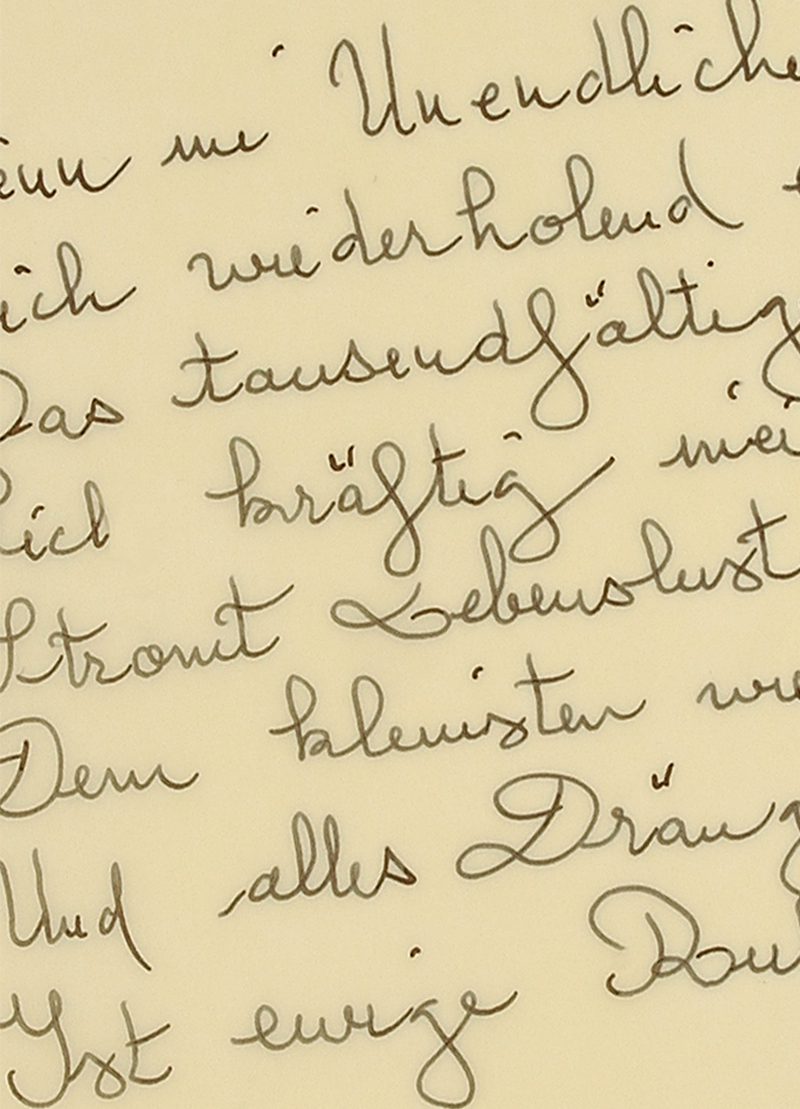 enn im Unendliche
ich wiederholend e
Das tausendfältig
ich kräftig mei
Strömt Lebenslust
Dem kleinsten wie
Und alles Dräng
Ist ewige Ruh